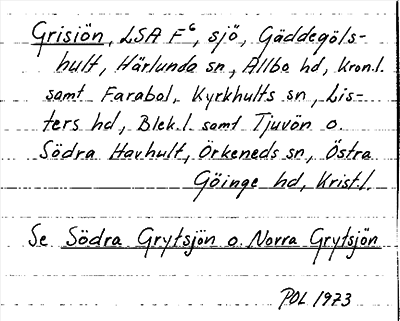 Grisiön, LSA F⁶, sjö, Gäddegöls-
hult, Härlunda sn, Allbo hd, Kron.l.
samt Farabol, Kyrkhults sn, Lis-
ters hd, Blek.l. samt Tjuvön o.
Södra Havhult, Örkeneds sn, Östra
Göinge hd, Krist.l.
Se Södra Grytsjön o. Norra Grytsjön
POL 1973